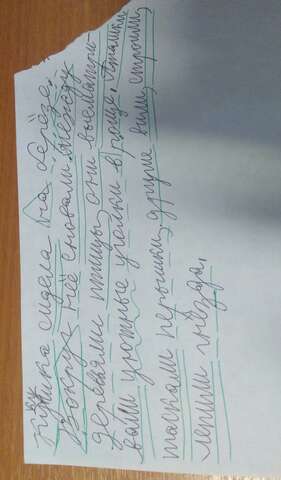 Жилка сидела на берёзе,
Вокруг неё сновали между
деревьями птицы, они высматри-
вали уютные уголки в роще. Пташки
таскали пёрышки, другие вили, строили,
лепили гнёзда.